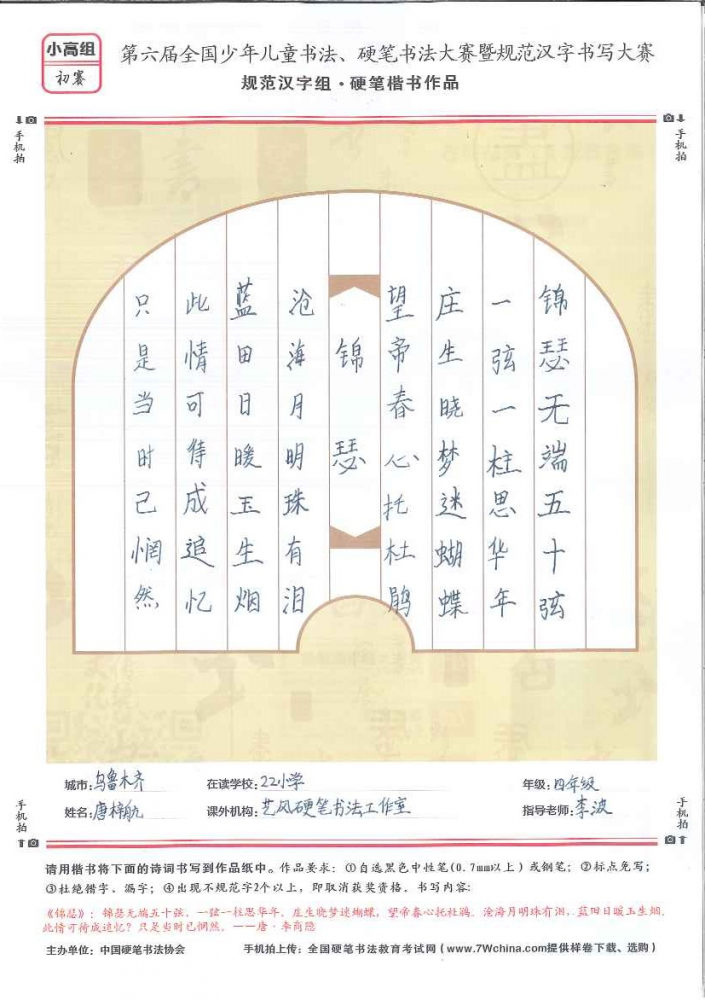 小高组
初赛
第六届全国少年儿童书法、硬笔书法大赛暨规范汉字书写大赛
规范汉字组·硬笔楷书作品
手机拍
手机拍
锦瑟无端五十弦
一弦一柱思华年
庄生晓梦迷蝴蝶
望帝春心托杜鹃
锦瑟
沧海月明珠有泪
蓝田日暖玉生烟
此情可待成追忆
只是当时已惘然
城市:乌鲁木齐 在读学校:22小学 年级:四年级
姓名:唐梓航 课外机构:艺风硬笔书法工作室 指导老师:李波
手机拍
手机拍
请用楷书将下面的诗词书写到作品纸中。作品要求:①自选黑色中性笔(0.7mm以上)或钢笔;②标点免写;
③杜绝错字、漏字;④出现不规范字2个以上,即取消获奖资格。书写内容:
《锦瑟》:锦瑟无端五十弦,一弦一柱思华年。庄生晓梦迷蝴蝶,望帝春心托杜鹃。沧海月明珠有泪,蓝田日暖玉生烟。
此情可待成追忆?只是当时已惘然。——唐·李商隐
主办单位:中国硬笔书法协会 手机拍上传:全国硬笔书法教育考试网(www.7Wchina.com提供样卷下载、选购)